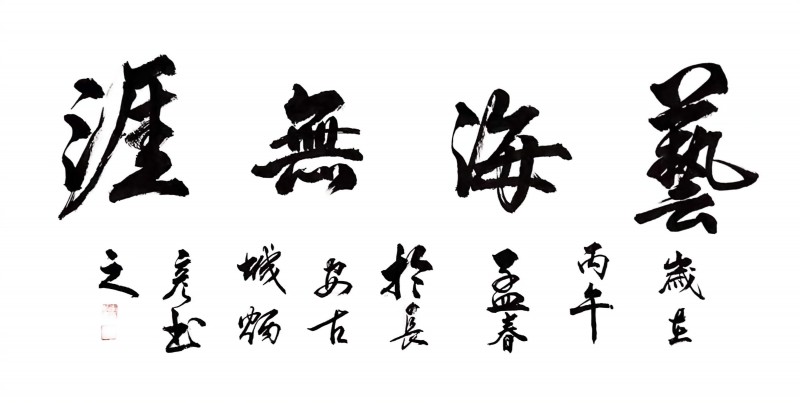 藝海無涯
歲在
丙午
孟春
於長
安古
城
彥书
之